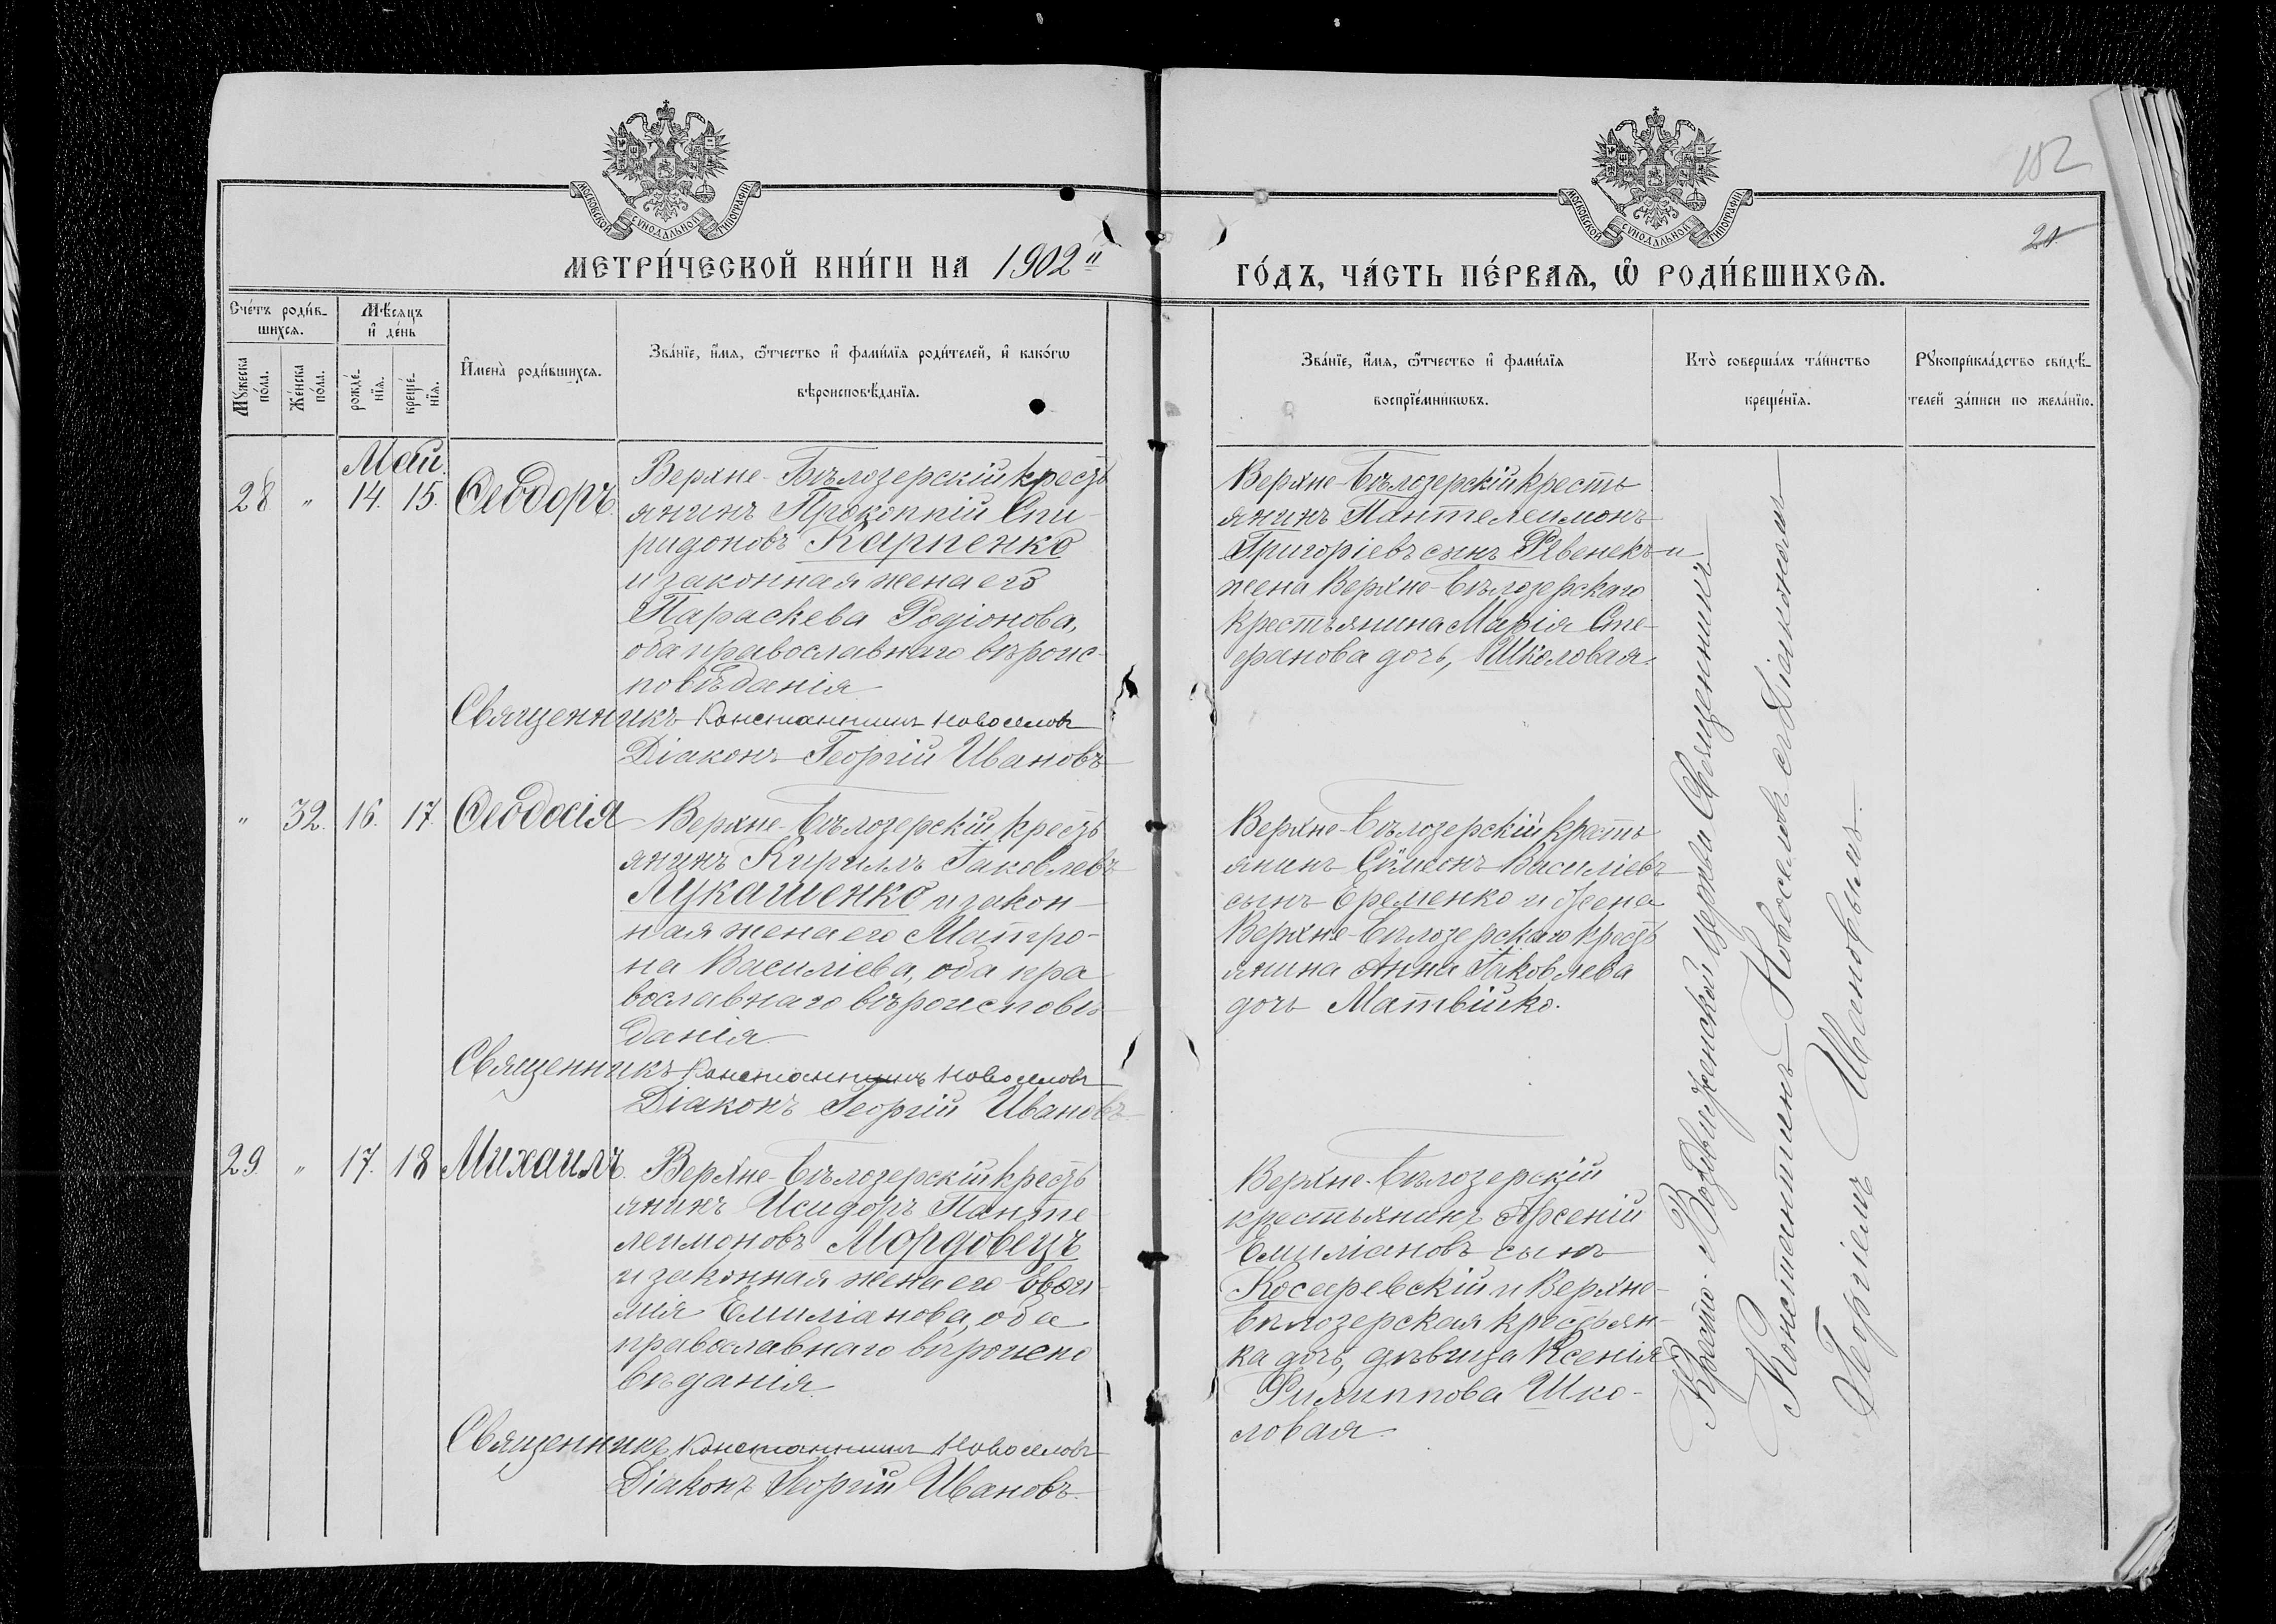 МОСКОВСКОЙ СѴНОДАЛЬНОЙ ТИПОГРАФІИ
МОСКОВСКОЙ СѴНОДАЛЬНОЙ ТИПОГРАФІИ
182
21
МЕТРИ́ЧЕСКОЙ КНИ́ГИ НА 1902й
ГО́ДЪ, ЧА́СТЬ ПЕ́РВАѦ, Ѡ҆ РОДИ́ВШИХСѦ.
Сче́тъ роди́в-
шихсѧ.
Мꙋ́жеска по́ла.
Же́нска по́ла.
Мѣ́сѧцъ и҆ де́нь
рожде́-
нїѧ.
креще́-
нїѧ.
И҆мена̀ роди́вшихсѧ.
Зва́нїе, и҆́мѧ, ѻ҆́тчество и҆ фами́лїѧ роди́телей, и҆ како́гѡ
вѣроисповѣ́данїѧ.
Зва́нїе, и҆́мѧ, ѻ҆́тчество и҆ фами́лїѧ
воспрїе́мникѡвъ.
Кто̀ соверша́лъ та́инство
креще́нїѧ.
Рꙋкоприкла́дство свидѣ́-
телей за́писи по жела́нїю.
Май.
28 " 14. 15. Ѳеодоръ.
Верхне-Бѣлозерскій кресть
янинъ Прокопій Спи-
ридоновъ Карпенко
и законная жена его
Параскева Родіонова,
оба православнаго вѣроис-
повѣданія
Священникъ Константинъ Новоселовъ
Діаконъ Георгій Ивановъ
Верхне-Бѣлозерскій кресть
янинъ Пантелеимонъ
Григоріевъ сынъ Рѣвенекъ и
жена Верхне-Бѣлозерскаго
крестьянина Марія Сте-
фанова дочь, Школовая.
" 32. 16. 17. Ѳеодосія
Верхне-Бѣлозерскій кресть
янинъ Кириллъ Іаковлевъ
Лукашенко и закон-
ная жена его Матро-
на Василіева, оба пра
вославнаго вѣроисповѣ-
данія
Священникъ Константинъ Новоселовъ
Діаконъ Георгій Ивановъ
Верхне-Бѣлозерскій кресть
янинъ Сѷмеонъ Василіевъ
сынъ Еременко и жена
Верхне-Бѣлозерскаго кресть
янина Анна Іаковлева
дочь Матвійко.
29. " 17. 18 Михаилъ.
Верхне-Бѣлозерскій кресть
янинъ Исидоръ Панте
леимоновъ Мордовецъ
и законная жена его Евфи-
мія Емиліанова, оба
православнаго вѣроиспо
вѣданія.
Священникъ Константинъ Новоселовъ
Діаконъ Георгій Ивановъ.
Верхне-Бѣлозерскій
крестьянинъ Арсеній
Емиліановъ сынъ
Косаревскій и Верхне-
Бѣлозерская крестьян-
ка дочь, дѣвица Ксенія
Филиппова Шко-
ловая.
Кресто-Воздвиженской церкви Священникъ
Константинъ Новоселовъ съ Діакономъ
Георгіемъ Ивановымъ.